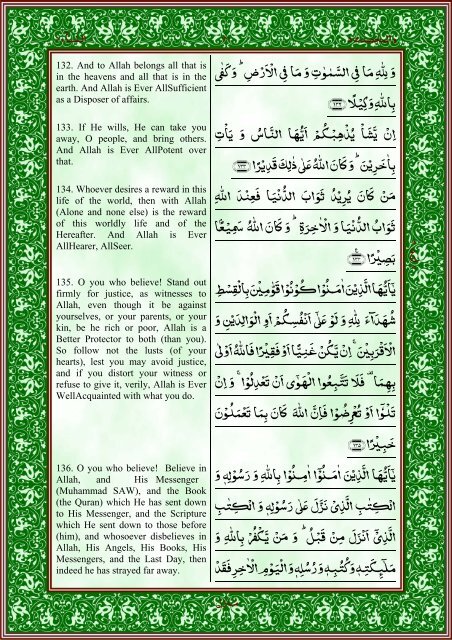 132. And to Allah belongs all that is
in the heavens and all that is in the
earth. And Allah is Ever AllSufficient
as a Disposer of affairs.
133. If He wills, He can take you
away, O people, and bring others.
And Allah is Ever AllPotent over
that.
134. Whoever desires a reward in this
life of the world, then with Allah
(Alone and none else) is the reward
of this worldly life and of the
Hereafter. And Allah is Ever
AllHearer, AllSeer.
135. O you who believe! Stand out
firmly for justice, as witnesses to
Allah, even though it be against
yourselves, or your parents, or your
kin, be he rich or poor, Allah is a
Better Protector to both (than you).
So follow not the lusts (of your
hearts), lest you may avoid justice,
and if you distort your witness or
refuse to give it, verily, Allah is Ever
WellAcquainted with what you do.
136. O you who believe! Believe in
Allah, and His Messenger
(Muhammad SAW), and the Book
(the Quran) which He has sent down
to His Messenger, and the Scripture
which He sent down to those before
(him), and whosoever disbelieves in
Allah, His Angels, His Books, His
Messengers, and the Last Day, then
indeed he has strayed far away.
وَ لِلّٰهِ مَا فِی السَّمٰوٰتِ وَ مَا فِی الْاَرْضِ ؕ وَ كَفٰی
بِاللّٰهِ وَكِیْلًا ﴿۱۳۲﴾
اِنْ یَّشَاْ یُذْهِبْكُمْ اَیُّهَا النَّاسُ وَ یَاْتِ
بِاٰخَرِیْنَ ؕ وَ كَانَ اللّٰهُ عَلٰی ذٰلِكَ قَدِیْرًا ﴿۱۳۳﴾
مَنْ كَانَ یُرِیْدُ ثَوَابَ الدُّنْیَا فَعِنْدَ اللّٰهِ
ثَوَابُ الدُّنْیَا وَ الْاٰخِرَةِ ؕ وَ كَانَ اللّٰهُ سَمِیْعًۢا
بَصِیْرًا ﴿۱۳۴﴾
یٰۤاَیُّهَا الَّذِیْنَ اٰمَنُوْا كُوْنُوْا قَوّٰمِیْنَ بِالْقِسْطِ
شُهَدَآءَ لِلّٰهِ وَ لَوْ عَلٰۤی اَنْفُسِكُمْ اَوِ الْوَالِدَیْنِ وَ
الْاَقْرَبِیْنَ ۚ اِنْ یَّكُنْ غَنِیًّا اَوْ فَقِیْرًا فَاللّٰهُ اَوْلٰی
بِهِمَا ۟ فَلَا تَتَّبِعُوا الْهَوٰۤی اَنْ تَعْدِلُوْا ۚ وَ اِنْ
تَلْوٗۤا اَوْ تُعْرِضُوْا فَاِنَّ اللّٰهَ كَانَ بِمَا تَعْمَلُوْنَ
خَبِیْرًا ﴿۱۳۵﴾
یٰۤاَیُّهَا الَّذِیْنَ اٰمَنُوْۤا اٰمِنُوْا بِاللّٰهِ وَ رَسُوْلِهٖ وَ
الْكِتٰبِ الَّذِیْ نَزَّلَ عَلٰی رَسُوْلِهٖ وَ الْكِتٰبِ
الَّذِیْۤ اَنْزَلَ مِنْ قَبْلُ ؕ وَ مَنْ یَّكْفُرْ بِاللّٰهِ وَ
مَلٰٓىِٕكَتِهٖ وَ كُتُبِهٖ وَ رُسُلِهٖ وَ الْیَوْمِ الْاٰخِرِ فَقَدْ